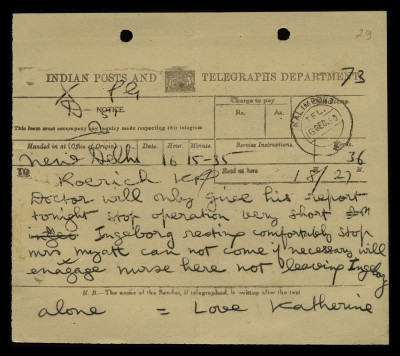 29
INDIAN POSTS AND TELEGRAPHS DEPARTMENT
X P4 73
NOTICE
This form must accompany any inquiry made respecting this telegram
Charge to pay
Rs. As.
KALIMPONG
Handed in at (Office of Origin). Date. Hour. Minute. Service Instructions.
New Delhi 16 15-35 36
TO Recd. at here
Roerich KPG 18/27
Doctor will only give his report
tonight stop operation very short
Ingeborg resting comfortably stop
mrs myatt can not come if necessary will
engage nurse here not leaving Ingeborg
N. B.—The name of the Sender, if telegraphed, is written after the text
alone = Love Katherine